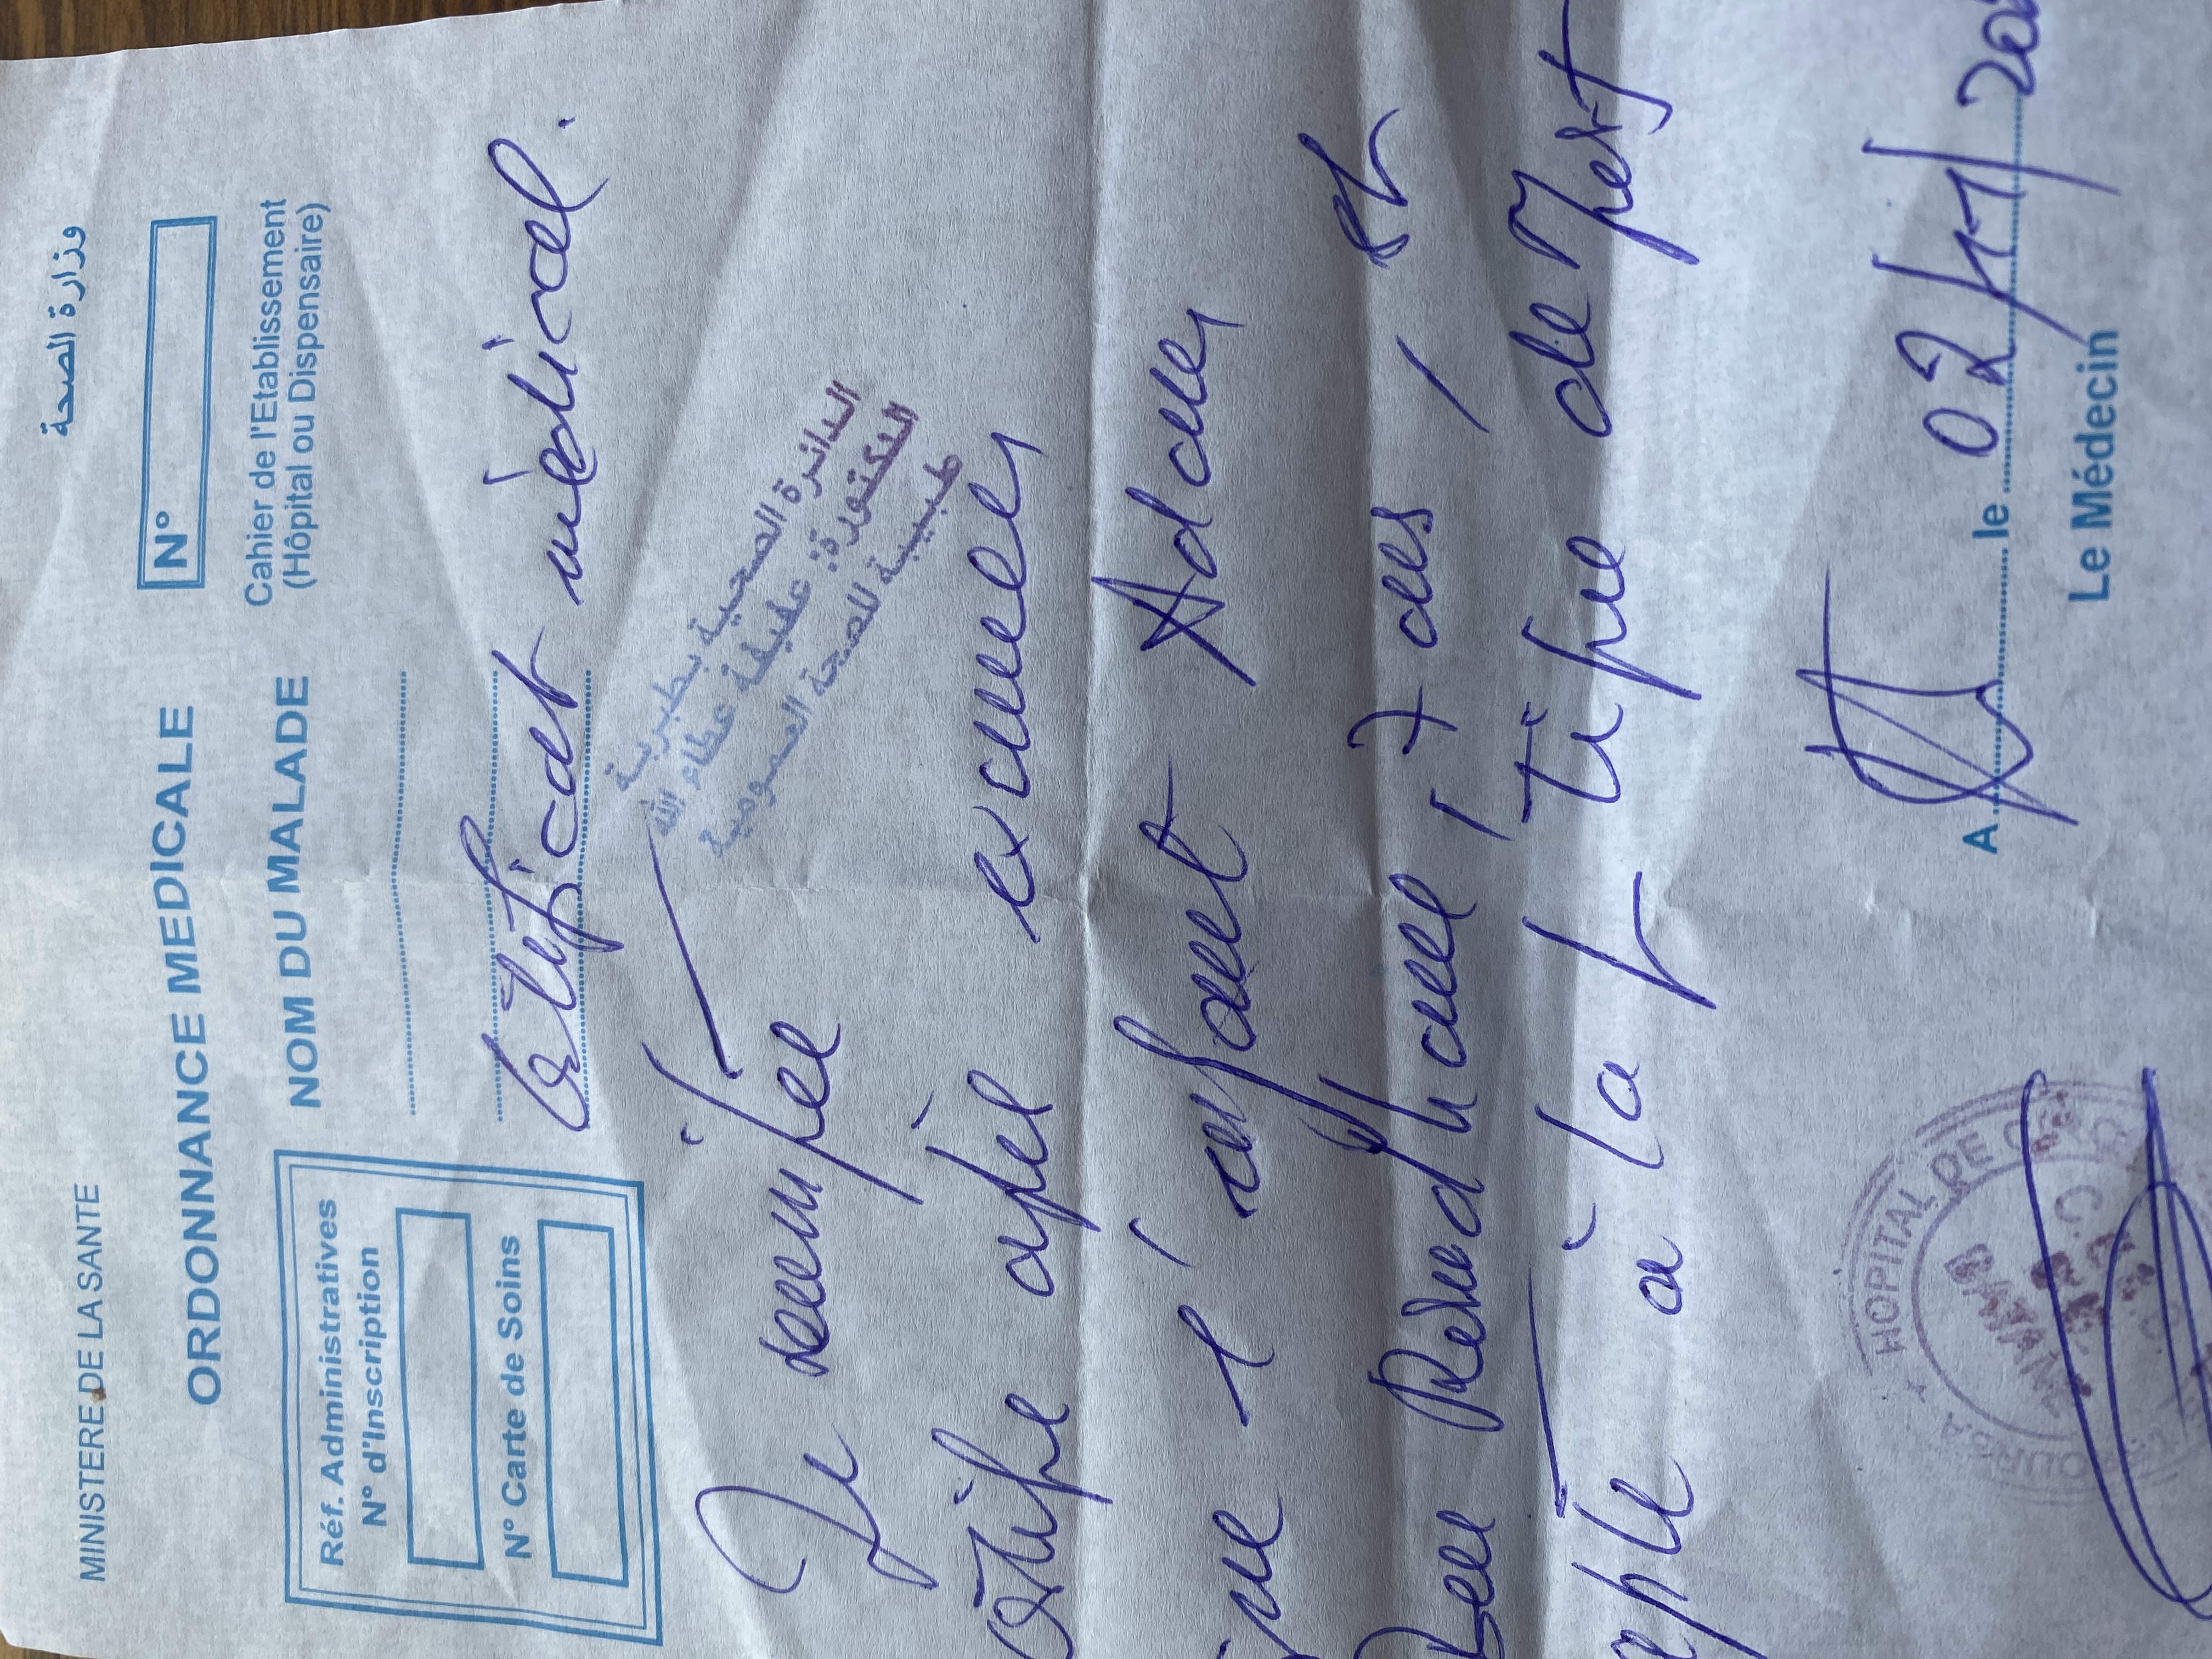 MINISTERE DE LA SANTE
وزارة الصحة
ORDONNANCE MEDICALE
N°
Réf. Administratives
N° d'Inscription
N° Carte de Soins
NOM DU MALADE
Cahier de l'Etablissement
(Hôpital ou Dispensaire)
Certificat médical.
الدائرة الصحية بطبربة
الدكتورة: عفيفة عطاء الله
طبيبة للصحة العمومية
Je
certifie après examen
que l'enfant Adam
Ben Romdhane, 7 ans, est
apte à la
A le 02/11/202
Le Médecin
HOPITAL DE